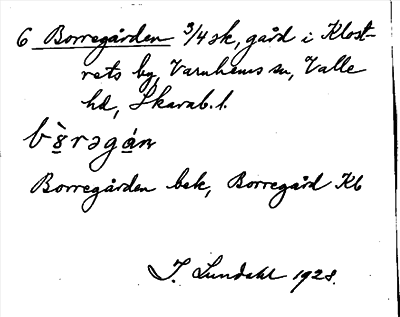 6 Borregården 3/4 sk, gård i Klost-
rets by, Varnhems sn, Valle
hd, Skarab. l.
bò̤rəgán
Borregården bek, Borregård Kb
I. Lundahl 1928.